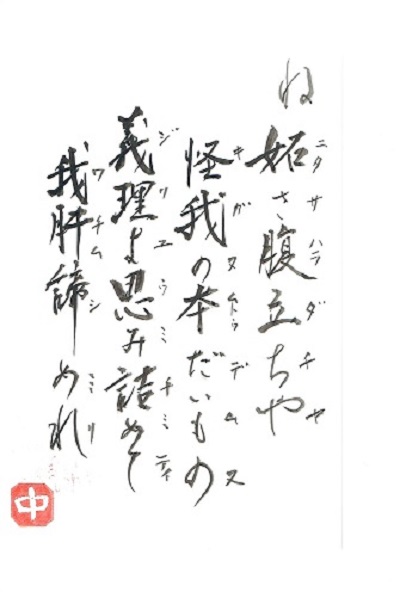 ね
妬さ腹立ちや
ニタサハラダチヤ
怪我の本だいもの
キガヌムトゥデムヌ
義理よ思み詰めて
ジリユウミチミティ
我肝諦めれ
中